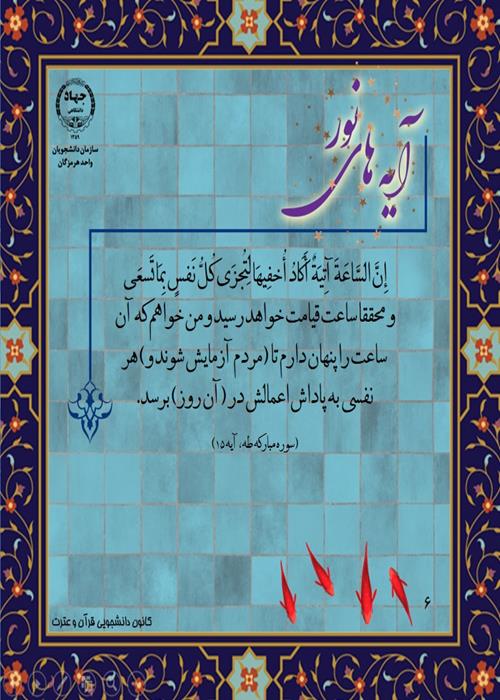 جهاد
دانشگاهی
۱۳۵۹
سازمان دانشجویان
واحد هرمزگان
آیه های نور
إِنَّ السَّاعَةَ آتِيَةٌ أَكَادُ أُخفِيهَا لِتُجزَى كُلُّ نَفسٍ بِمَا تَسعَى
و محققا ساعت قیامت خواهد رسید و من خواهم که آن
ساعت را پنهان دارم تا (مردم آزمایش شوند و) هر
نفسی به پاداش اعمالش در (آن روز) برسد.
(سوره مبارکه طه، آیه ۱۵)
۶
کانون دانشجویی قرآن و عترت